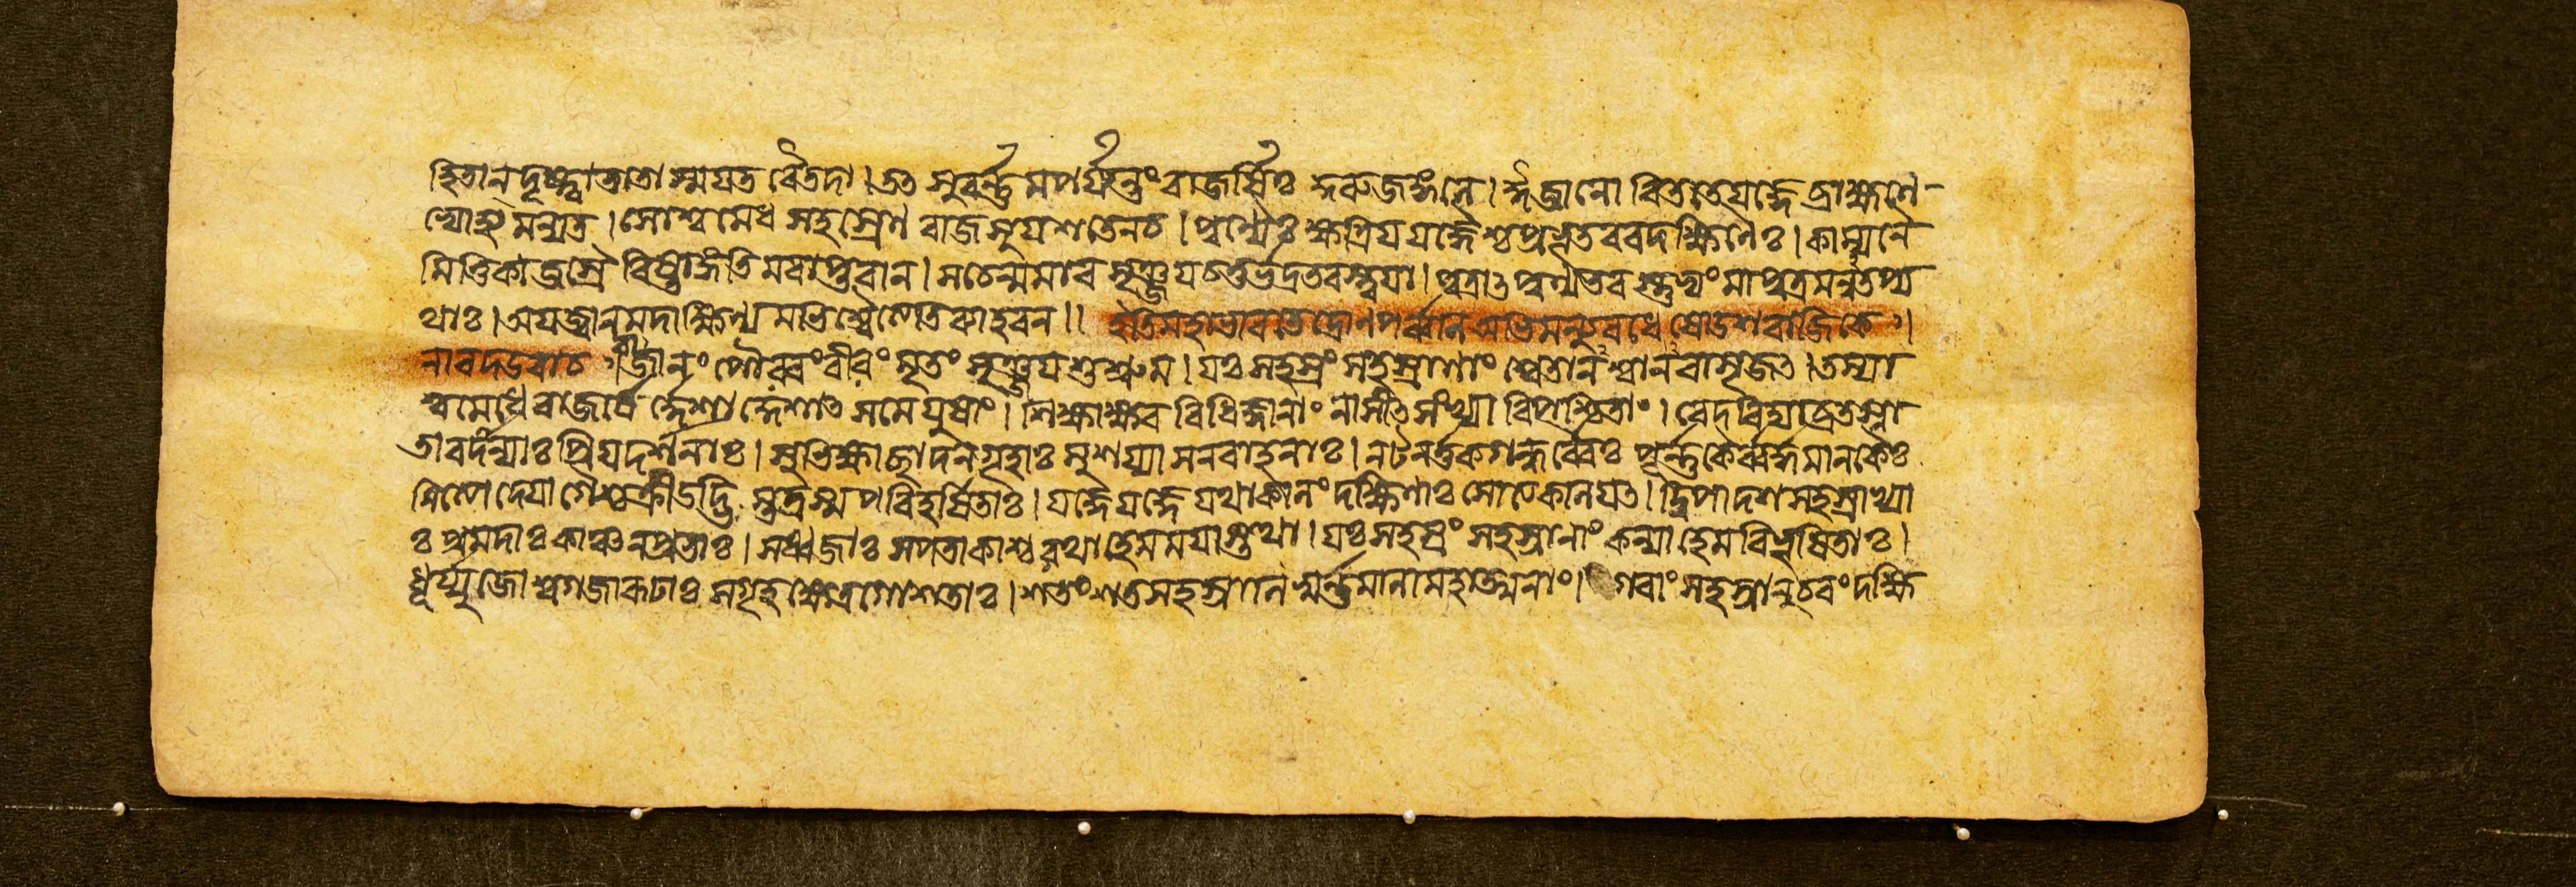 হিতান্ দৃষ্ট্বা ততো স্ময়ত বৈ তদা । তৎ সুবর্ন্নমপর্য্যন্তং রাজর্ষিঃ কুরুজঙ্গলে । ঈজানো বিততে যজ্ঞে ব্রাহ্মণে
ভ্যো হ্যমন্যত । সোশ্বমেধ সহস্রেণ রাজসূয় শতেন চ । পুণ্যৈঃ ক্ষত্রিয় যজ্ঞৈশ্চ প্রভূতবরদক্ষিণৈঃ । কাম্যনৈ
মিত্তিকাজস্রৈ রিষ্টাং গতিমবাপ্তবান । স চেন্মমার সৃঞ্জয় চতুর্ভদ্রতরস্ত্বয়া । পুত্রাৎ পুণ্যতরস্তুভ্যং মা পুত্রমনুতপ্য
থাঃ । অযজ্বানমদাক্ষিণ্যমভি শ্বৈত্যেত্যুদাহরন ॥ ইতি মহাভারতে দ্রোণপর্ব্বনি অভিমন্যুবধে ষোড়শরাজিকে ।
নারদ উবাচ । রাজানং পৌরবং বীরং মৃতং সৃঞ্জয় শুশ্রুম । যঃ সহস্রং সহস্রাণাং শ্বেতানশ্বানবাসৃজৎ । তস্যা
শ্বমেধে রাজর্ষের্দ্দেশাদ্দেশাৎ সমেয়ুষাং । শিক্ষাক্ষর বিধিজ্ঞানাং নাসীৎ সংখ্যা বিপশ্চিতাং । বেদবিদ্যাব্রতস্না
তা বদান্যাঃ প্রিয়দর্শনাঃ । সুভিক্ষাচ্ছাদনগৃহাঃ সুশয্যাসনবাহনাঃ । নটনর্ত্তকগন্ধর্ব্বৈঃ পূর্ন্নকৈর্ব্বর্দ্ধমানকৈঃ
নিত্যোদ্যোগৈশ্চ ক্রীডদ্ভি স্তত্র স্ম পরিহর্ষিতাঃ । যজ্ঞে যজ্ঞে যথাকালং দক্ষিণাঃ সোত্যকালয়ৎ । দ্বিপা দশসহস্রাখ্যা
ঃ প্রমদাঃ কাঞ্চনপ্রভাঃ । সধ্বজাঃ সপতাকাশ্চ রথা হেমময়াস্তথা । যঃ সহস্রং সহস্রানাং কন্যা হেমবিভূষিতাঃ ।
ধূর্য্যুজোশ্বগজারূঢাঃ সগৃহক্ষেত্রগোশতাঃ । শতং শতসহস্রানি স্বর্ন্নমালা মহাত্মনাং । গবাং সহস্রানুচরং দক্ষি